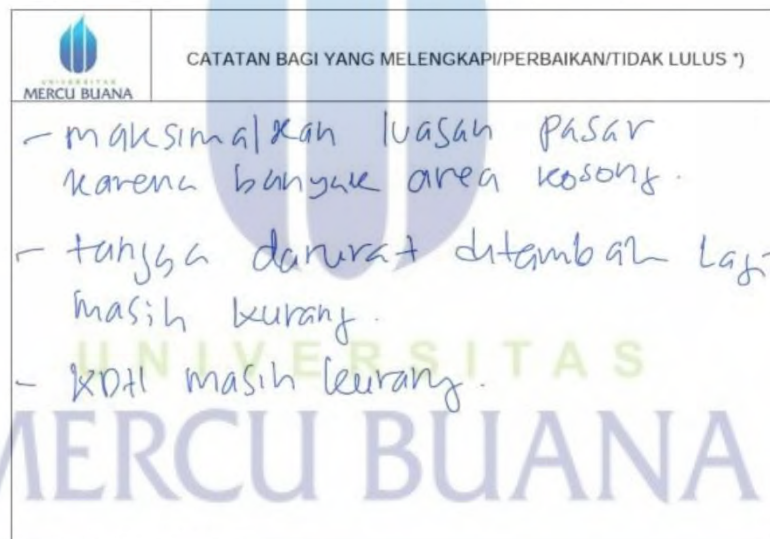 UNIVERSITAS
MERCU BUANA
CATATAN BAGI YANG MELENGKAPI/PERBAIKAN/TIDAK LULUS *)
- maksimalkan luasan pasar
karena banyak area kosong.
- tangga darurat ditambah lagi
masih kurang.
- KDH masih kurang.
UNIVERSITAS
MERCU BUANA